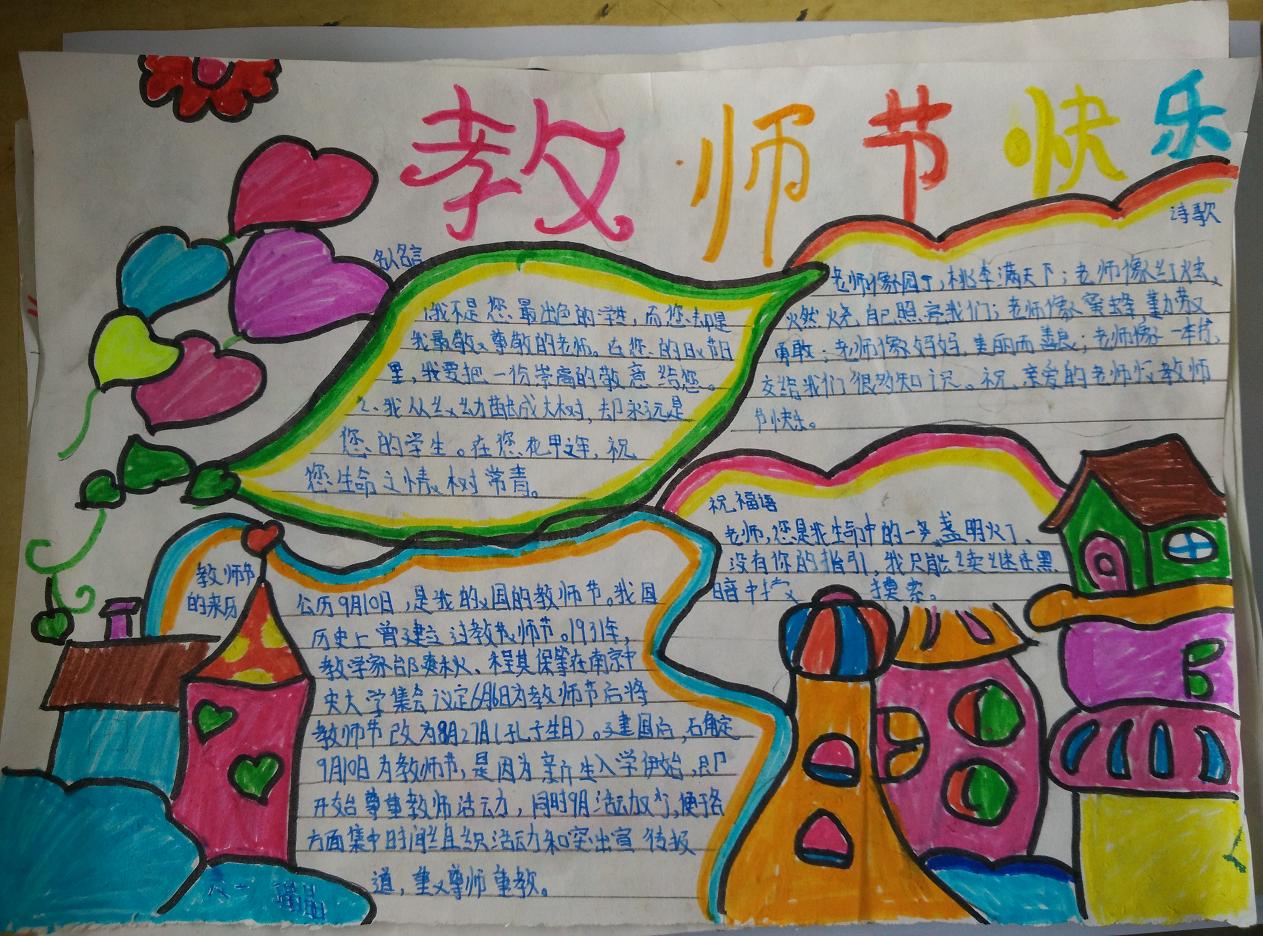 教师节快乐
名人名言
1.我不是您最出色的学生,而您却是
我最敬又尊敬的老师。在您的日又节日
里,我要把一份崇高的敬意给您。
2、我从幼苗成大树,却永远是
您的学生。在您花甲之年,祝
您生命之树常青。
诗歌
老师像园丁,桃李满天下;老师像红烛,
燃烧自己照亮我们;老师像蜜蜂,勤劳又
勇敢;老师像妈妈,美丽而善良;老师像一本书,
交给我们很多知识。祝亲爱的老师们教师
节快乐。
祝福语
老师,您是我生命中的一盏明灯,
没有你的指引,我只能继续在黑
暗中 摸索。
教师节
的来历
公历9月10日,是我的国的教师节。我国
历史上曾建立过教师节。1931年,
教学家邰爽秋、程其保等在南京中
央大学集会议定6月6日为教师节后将
教师节改为8月27日(孔子生日)。建国后,确定
9月10日为教师节,是因为新生入学伊始,即
开始尊重教师活动,同时9月活动少,便于各
方面集中时间组织活动和突出宣传报
道,重又尊师重教。